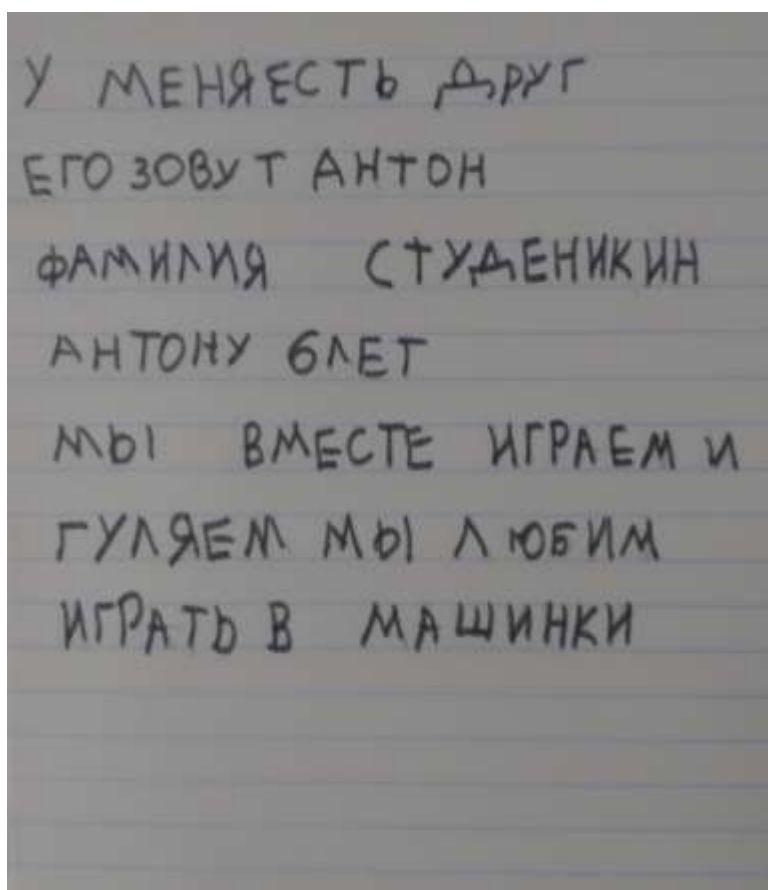 У МЕНЯЕСТЬ ДРУГ
ЕГО ЗОВУТ АНТОН
ФАМИЛИЯ СТУДЕНИКИН
АНТОНУ 6ЛЕТ
МЫ ВМЕСТЕ ИГРАЕМ И
ГУЛЯЕМ МЫ ЛЮБИМ
ИГРАТЬ В МАШИНКИ